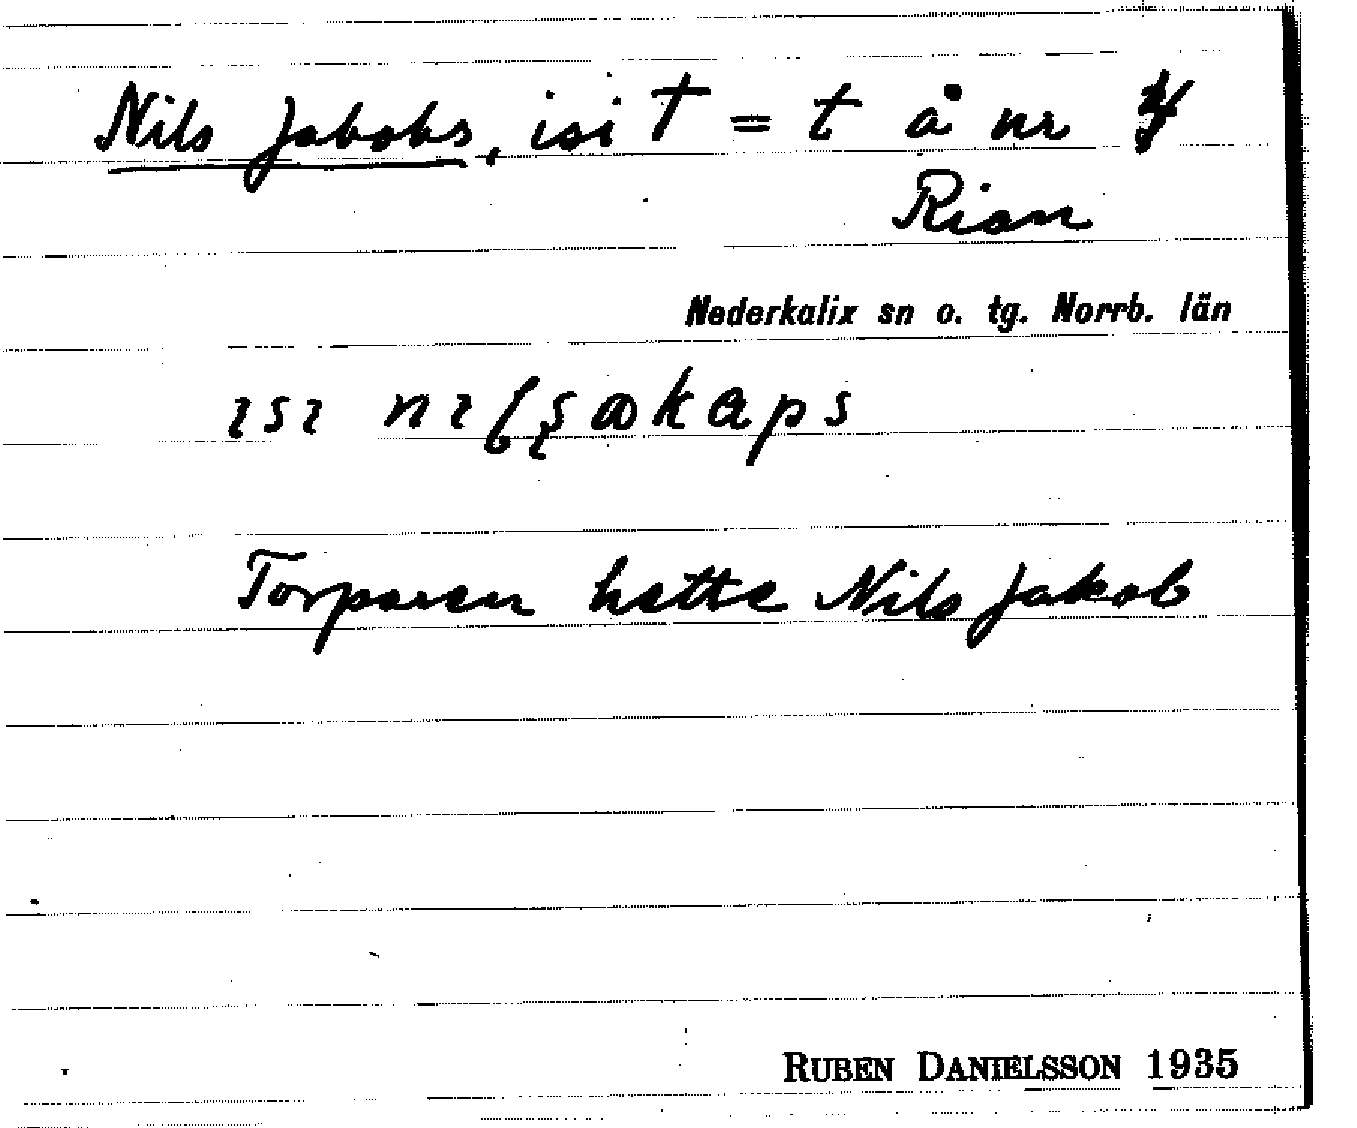 Nils Jakobs, isi T = t å nr 4
Rian
Nederkalix sn o. tg. Norrb. län
Torparen hette Nils Jakob
RUBEN DANIELSSON 1935